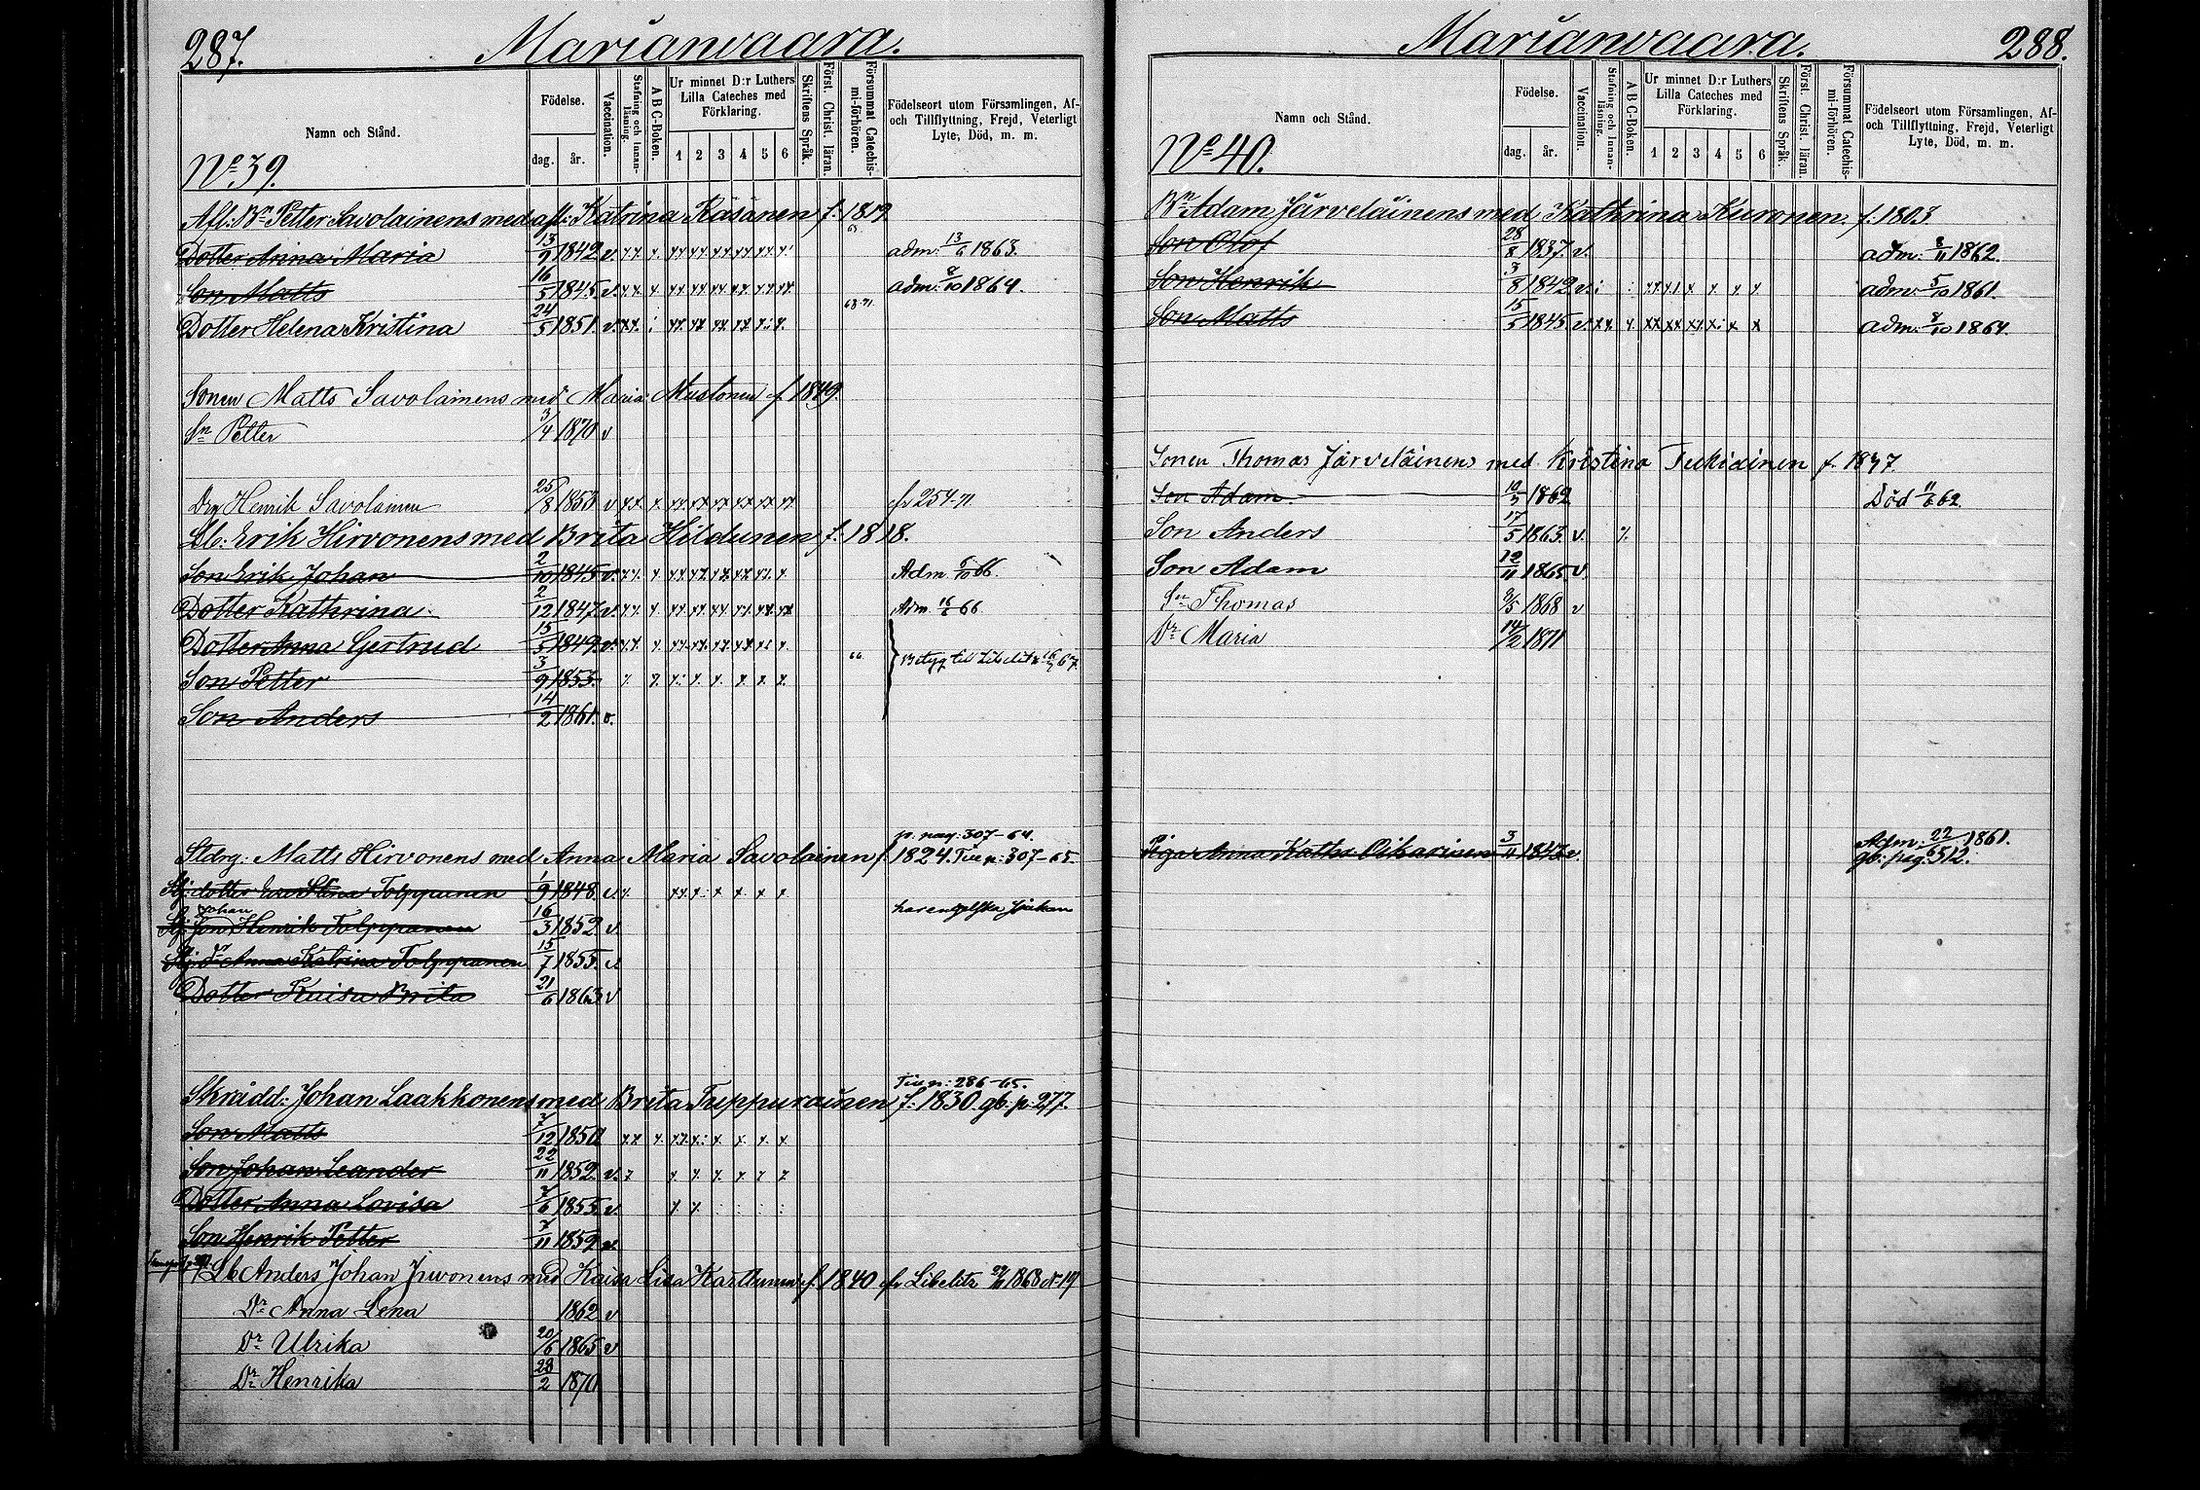 287. Marianvaara.
Namn och Stånd.
Födelse.
dag. år.
Vaccination.
Stafning och Innanläsning.
A B C-Boken.
Ur minnet D:r Luthers Lilla Cateches med Förklaring.
1 2 3 4 5 6
Skriftens Språk.
Först. Christ. läran.
Försummat Catechismi-förhören.
Födelseort utom Församlingen, Af- och Tillflyttning, Frejd, Veterligt Lyte, Död, m. m.
No 39.
Afl: Bn Petter Savolainens med afl: Katrina Räsänen f. 1819.
Dotter Anna Maria 13/9 1842 v. adm: 13/6 1863.
Son Matts 16/5 1845 v. adm: 8/10 1864.
Dotter Helena Kristina 24/5 1851 v 68-71
Sonen Matts Savolainens med Maria Mustonen f. 1849.
Sn Petter 3/4 1870 v
Drg Henrik Savolainen 25/8 1853 v fr 254-71
Lb: Erik Hirvonens med Brita Hildunen f. 1818.
Son Erik Johan 2/10 1845 v. Adm. 6/10 66.
Dotter Kathrina 2/12 1847 v. Adm. 66
Dotter Anna Gertrud 15/5 1849 v. 66
Son Petter 3/9 1855. Betyg till Libelitz 67.
Son Anders 14/2 1861. v.
p. pag: 307-64.
Stdrg: Matts Hirvonens med Anna Maria Savolainen f. 1824. 307-65
Stj: dotter Eva Stina Tolppanen 1/9 1848. v
Johan
Stj: Son Henrik Tolppanen 16/3 1852 v. har engelska sjukan
Stj: Dr Anna Katrina Tolppanen 15/7 1855. v
Dotter Kaisa Brita 21/6 1863 v
286-65.
Skrädd: Johan Laakkonens med Brita Turppurainen f. 1830. gb. p: 277.
Son Matts 7/12 1850
Son Johan Leander 22/11 1852. v.
Dotter Anna Lovisa 7/6 1855. v.
Son Henrik Petter 7/11 1859 v.
Lb Anders Johan Juvonens med Kaisa Lisa Karttunen f. 1840 fr Libelitz 1868 N 17
Dr Anna Lena 1862 v
Dr Ulrika 20/6 1865 v
Dr Henrika 28/2 1870
Marianvaara. 288.
Namn och Stånd.
Födelse.
dag. år.
Vaccination.
Stafning och Innanläsning.
A B C-Boken.
Ur minnet D:r Luthers Lilla Cateches med Förklaring.
1 2 3 4 5 6
Skriftens Språk.
Först. Christ. läran.
Försummat Catechismi-förhören.
Födelseort utom Församlingen, Af- och Tillflyttning, Frejd, Veterligt Lyte, Död, m. m.
No 40.
Bn Adam Järveläinens med Kathrina Kuronen f. 1803
Son Olof 28/8 1837. v. adm: 8/11 1862.
Son Henrik 3/8 1842 v. adm 5/10 1861.
Son Matts 15/5 1845 v. adm: 8/10 1864.
Sonen Thomas Järveläinens med Kristina Tukiainen f. 1837
Son Adam 10/5 1862 Död 11/6 62.
Son Anders 17/5 1863. v.
Son Adam 12/11 1865 v.
Sn Thomas 3/5 1868 v
Dr Maria 14/2 1871
Piga Anna Katha Oikarinen 3/11 1843 v. Adm: 22/6 1861.
gb: pag: 512.